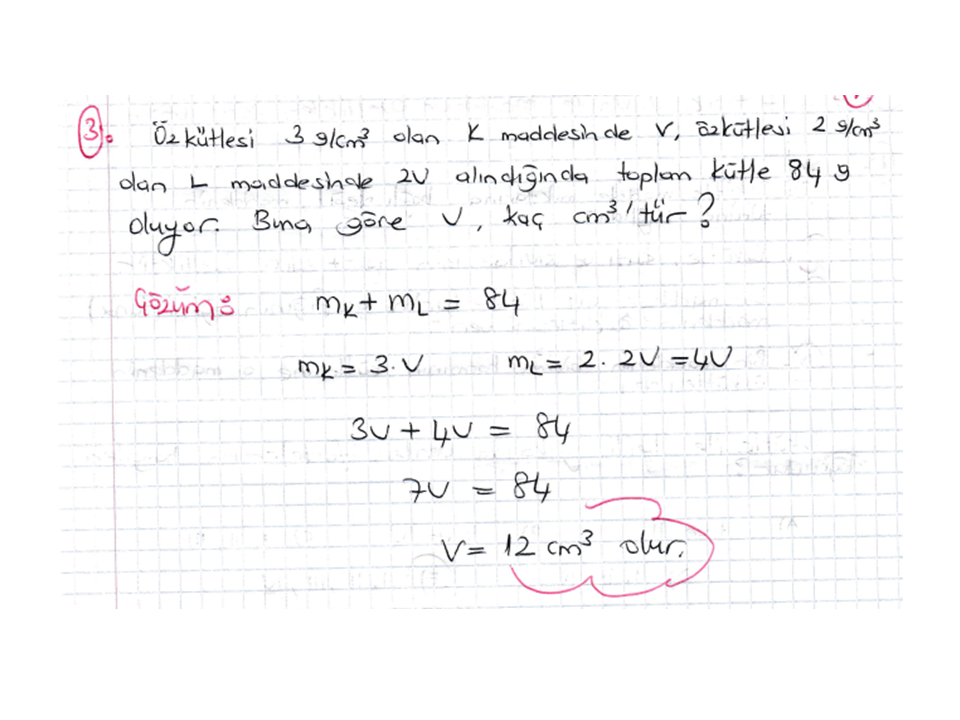 3. Özkütlesi 3 g/cm³ olan K maddesinde V, özkütlesi 2 g/cm³
olan L maddesinde 2V alındığında toplam kütle 84 g
oluyor. Buna göre V, kaç cm³'tür?
Çözüm:
mK + mL = 84
mK = 3.V mL = 2. 2V = 4V
3V + 4V = 84
7V = 84
V = 12 cm³ olur.